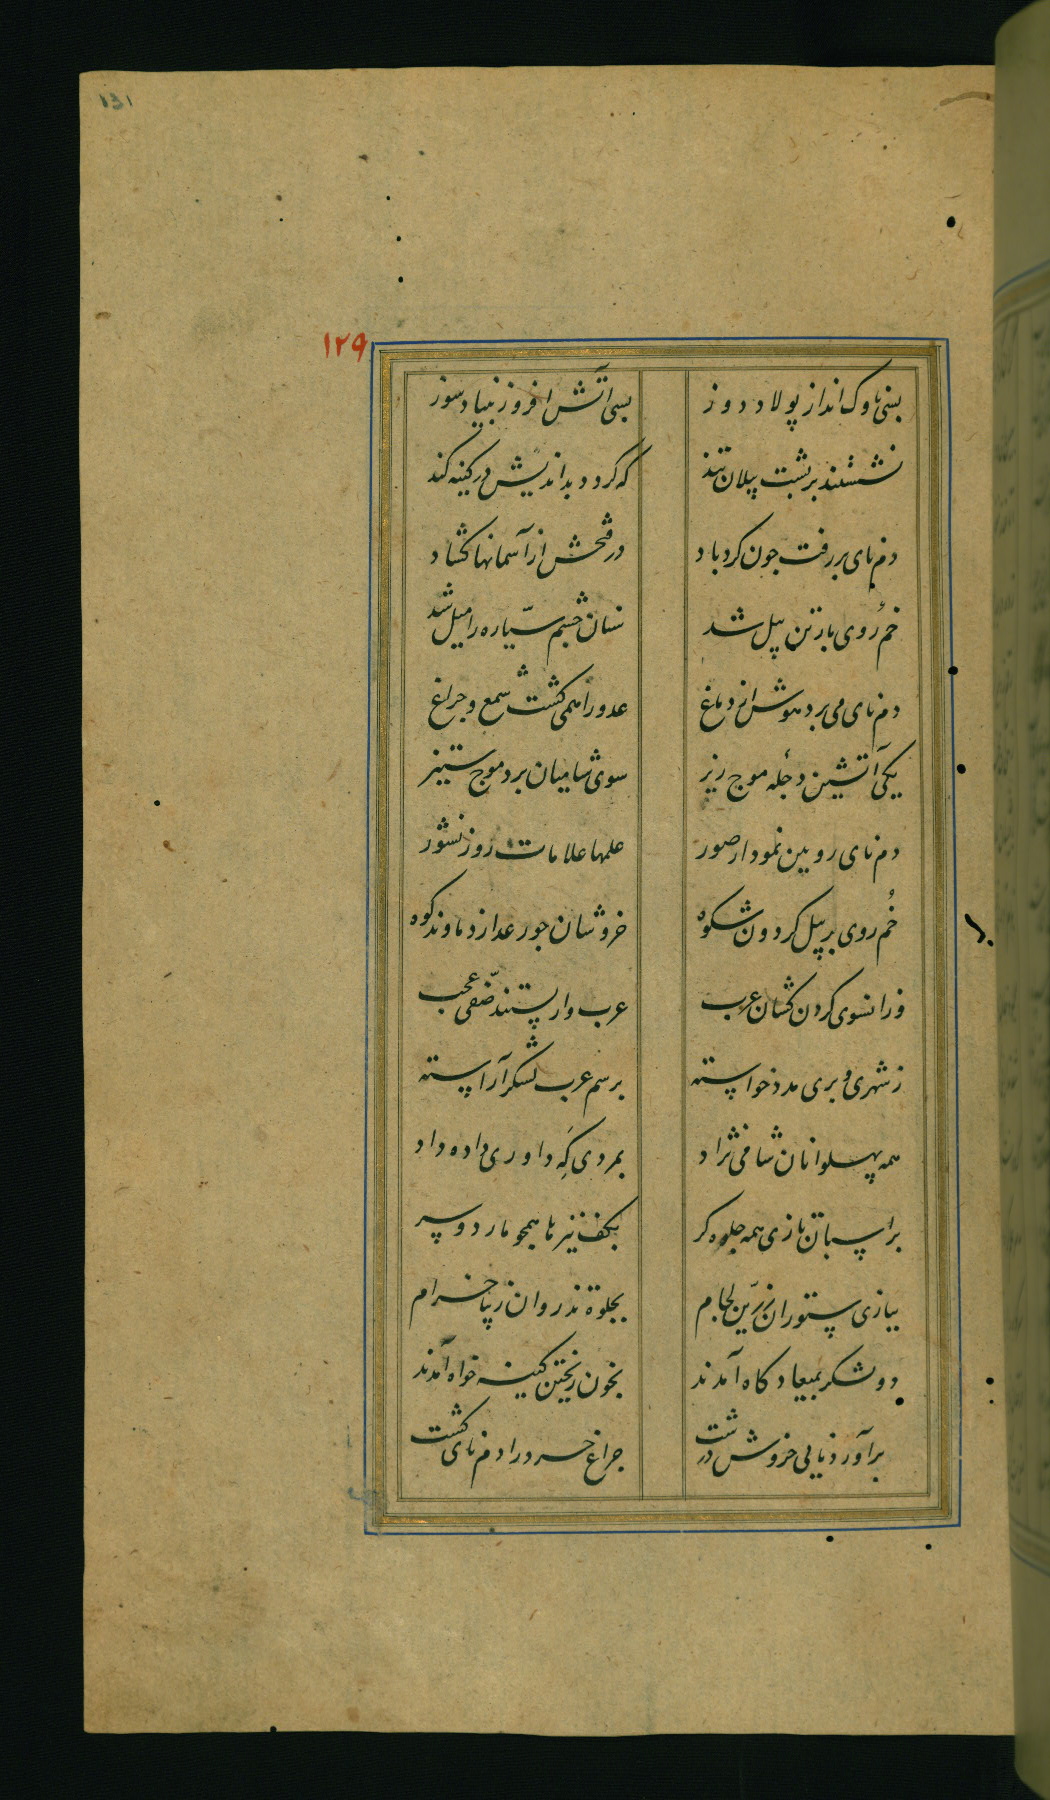 ۱۳۱
۱۲۹
بسی ناوک انداز پولاد دوز بسی آتش افروز بنیاد سوز
نشستند بر پشت پیلان تند که کردد بداندیش در کینه کند
دم نای بر رفت جون کردباد در فتحش از آسمانها کشاد
خم روی بار تن پیل شد سنان جشم سیّاره را میل شد
دم نای می برد هوش از دماغ عدو را همی کشت شمع و جراغ
یکی آتشین دجله موج ریز سوی شامیان برد موج ستیز
دم نای رویین نمودار صور علمها علامات روز نشور
خُم روی بر پیل کردون شکوه خروشان جو رعد از دماوند کوه
وزانسوی کردن کشان عرب عرب وار بستند صفّی عجب
ز شهری و بری مدد خواسته برسم عرب لشکر آراسته
همه پهلوانان شامی نژاد بمردی که داوری داده داد
بر اسبان تازی همه جلوه کر بکف نیزها همجو مار دو سر
ببازی ستوران زرّین لجام بجلوه تذروان زیبا خرام
دو لشکر بمیعادکاه آمدند بخون ریختن کینه خواه آمدند
برآورد نایی خروش درشت جراغ خرد را دم نای کشت